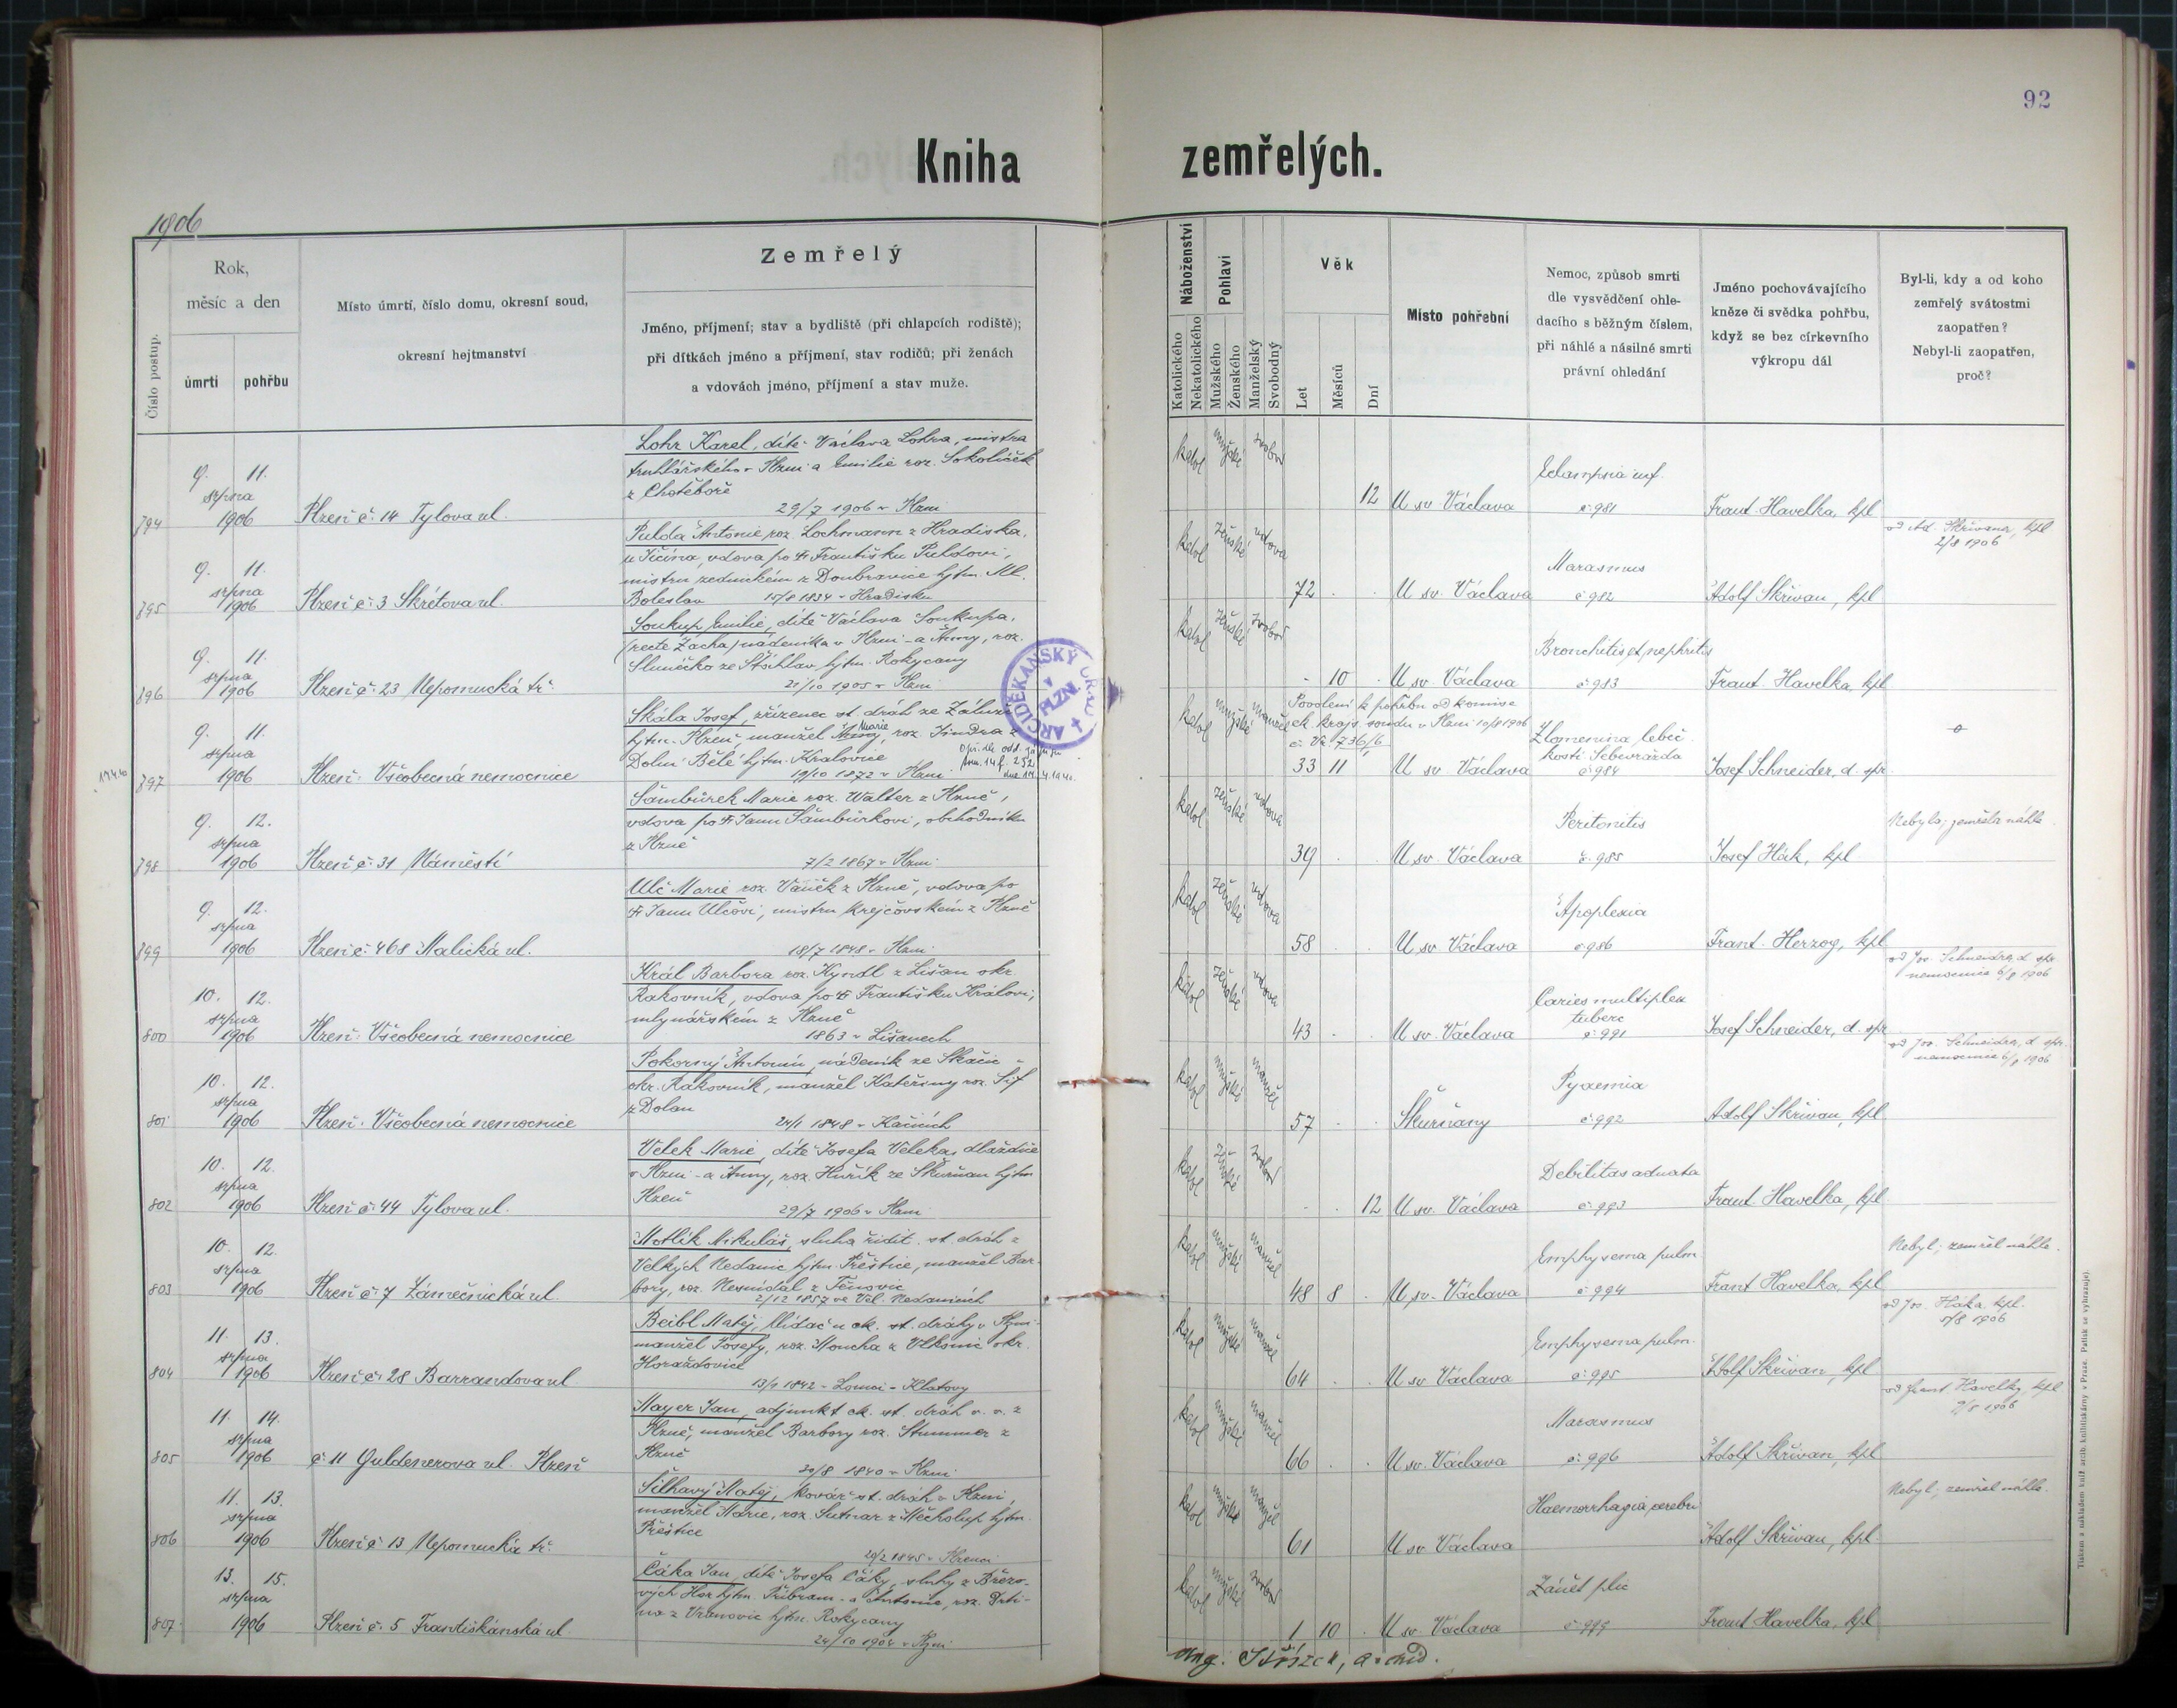 92
Kniha zemřelých.
1906
Číslo postup.
Rok,
měsíc a den
úmrtí
pohřbu
Místo úmrtí, číslo domu, okresní soud,
okresní hejtmanství
Zemřelý
Jméno, příjmení; stav a bydliště (při chlapcích rodiště);
při dítkách jméno a příjmení, stav rodičů; při ženách
a vdovách jméno, příjmení a stav muže.
Náboženství
Katolického
Nekatolického
Pohlaví
Mužského
Ženského
Manželský
Svobodný
Věk
Let
Měsíců
Dní
Místo pohřební
Nemoc, způsob smrti
dle vysvědčení ohle-
dacího s běžným číslem,
při náhlé a násilné smrti
právní ohledání
Jméno pochovávajícího
kněze či svědka pohřbu,
když se bez církevního
výkropu dál
Byl-li, kdy a od koho
zemřelý svátostmi
zaopatřen?
Nebyl-li zaopatřen,
proč?
794
9. 11.
srpna
1906
Plzeň č. 14 Tylova ul.
Lohr Karel, dítě Václava Lohra, mistra
truhlářského v Plzni a Emilie roz. Sokolíček
z Chotěboře
29/7 1906 v Plzni
katol mužské svobod
12
U sv Václava
Eclampsia inf.
č 981
Frant. Havelka, kpl
795
9. 11.
srpna
1906
Plzeň č. 3 Skrétova ul.
Pulda Antonie roz. Lochmann z Hradiska,
u Jičína, vdova po Františku Puldovi,
mistru zednickém z Doubravice hjtm. Ml.
Boleslav 15/8 1834 v Hradisku
katol ženské vdova
72
U sv. Václava
Marasmus
č 982
Adolf Skřivan, kpl
od Ad. Skřivana, kpl
2/8 1906
796
9. 11.
srpna
1906
Plzeň č. 23 Nepomucká tř.
Soukup Emilie, dítě Václava Soukupa,
(recte Zacha) nádeníka v Plzni a Anny, roz.
Slunéčko ze Šťáhlav, hjtm. Rokycany
21/10 1905 v Plzni
katol ženské svobod
10
U sv. Václava
Bronchitis et nephritis
č 983
Frant. Havelka, kpl
ARCIDĚKANSKÝ ÚŘAD
v
PLZNI
797
9. 11.
srpna
1906
Plzeň. Všeobecná nemocnice
Skála Josef, zřízenec st. dráh ze Záluží
hjtm. Plzeň, manžel Marie, roz. Jindra z
Dolní Bělé hjtm. Kralovice
19/10 1872 v Plzni
katol mužské manžel
Povolení k pohřbu od komise
ck. krajs. soudu v Plzni 10/8 1906
č. Vr. 736/6
33 11
U sv Václava
Zlomenina lebeč.
kostí Sebevražda
č 984
Josef Schneider, d. spr.
798
9. 12.
srpna
1906
Plzeň č. 31 Náměstí
Šambůrek Marie roz. Walter z Plzně,
vdova po Janu Šambůrkovi, obchodníku
z Plzně
7/2 1867 v Plzni
katol ženské vdova
39
U sv. Václava
Peritonitis
č. 985
Josef Hák, kpl
Nebyla; zemřela náhle
799
9. 12.
srpna
1906
Plzeň č. 468 Malická ul.
Ulč Marie roz. Vaněk z Plzně, vdova po
Janu Ulčovi, mistru krejčovském z Plzně
18/7 1848 v Plzni
katol ženské vdova
58
U sv. Václava
Apoplexia
č 986
Frant. Herzog, kpl
800
10. 12.
srpna
1906
Plzeň. Všeobecná nemocnice
Král Barbora roz. Kyndl z Lišan okr.
Rakovník, vdova po Františku Královi,
mlynářském z Plzně
1863 v Lišanech
katol ženské vdova
43
U sv. Václava
Caries multiplex
tuberc
č 991
Josef Schneider, d. spr
od Jos. Schneidra, d. spr.
nemocnice 6/8 1906
801
10. 12.
srpna
1906
Plzeň. Všeobecná nemocnice
Pokorný Antonín, nádeník ze Skačic
okr. Rakovník, manžel Kateřiny roz. Šíf
z Dolan
24/1 1848 v Kačicích
katol mužské manžel
57
Skurňany
Pyaemia
č 992
Adolf Skřivan, kpl
od Jos. Schneidra, d. spr.
nemocnice 6/8 1906
802
10. 12.
srpna
1906
Plzeň č. 44 Tylova ul.
Velek Marie, dítě Josefa Veleka, dlaždiče
v Plzni a Anny, roz. Huřík ze Skurňan hjtm
Plzeň
29/7 1906 v Plzni
katol ženské svobod
12
U sv. Václava
Debilitas adnata
č. 993
Frant. Havelka, kpl
803
10. 12.
srpna
1906
Plzeň č. 7 Zámečnická ul.
Motlík Mikuláš, sluha ředit. st. dráh z
Velkých Nedanic hjtm. Přeštice, manžel Bar-
bory, roz. Nesnídal z Týnovic
2/12 1857 ve Vel. Nedanicích
katol mužské manžel
48 8
U sv. Václava
Emphysema pulm
č 994
Frant Havelka, kpl
Nebyl; zemřel náhle.
804
11. 13.
srpna
1906
Plzeň č. 28 Barrandova ul
Beibl Matěj, hlídač u ck. st. dráhy v Plzni
manžel Josefy, roz. Moucha z Vlkonic okr.
Horažďovice
13/9 1842 v Lomci - Klatovy
katol mužské manžel
64
U sv Václava
Emphysema pulm.
č. 995
Adolf Skřivan, kpl
od Jos. Háka, kpl.
5/8 1906
805
11. 14.
srpna
1906
č. 11 Guldenerova ul. Plzeň
Mayer Jan, adjunkt ck. st. dráh v. v. z
Plzně, manžel Barbory roz. Stummer z
Plzně
20/8 1840 v Plzni
katol mužské manžel
66
U sv. Václava
Marasmus
č. 996
Adolf Skřivan, kpl
od Frant. Havelky, kpl
9/8 1906
806
11. 13.
srpna
1906
Plzeň č 13 Nepomucká tř.
Šilhavý Matěj, kovář st. dráh v Plzni,
manžel Marie, roz. Sutnar z Měcholup hjtm.
Přeštice
20/2 1845 v Křenici
katol mužské manžel
61
U sv Václava
Haemorrhagia cerebri
Adolf Skřivan, kpl.
Nebyl, zemřel náhle.
807
13. 15.
srpna
1906
Plzeň č. 5 Františkánská ul
Čáka Jan, dítě Josefa Čáky, sluhy z Březo-
vých Hor hjtm. Příbram a Antonie, roz. Drti-
na z Vranovic hjtm. Rokycany
24/10 1904 v Plzni
katol mužské svobod
1 10
U sv. Václava
Zánět plic
č. 999
Frant Havelka, kpl
Ant. Střížek, arciděk.
Tiskem a nákladem kníž. arcib. knihtiskárny v Praze. Padělek se vyhrazuje.